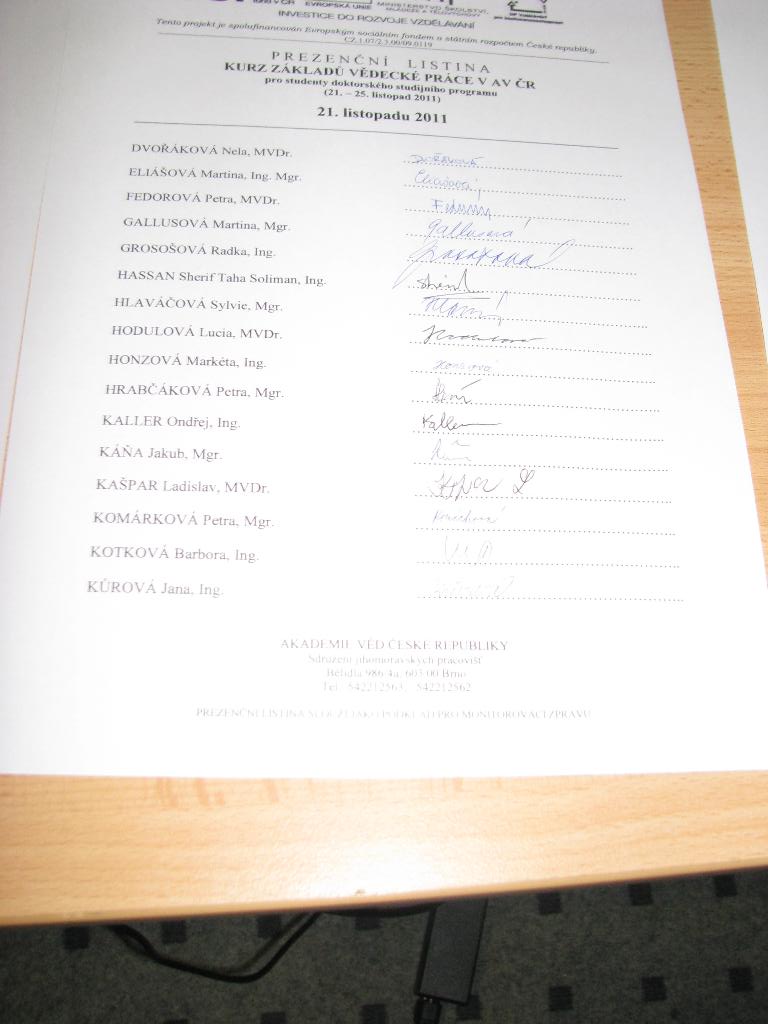 EVROPSKÁ UNIE MINISTERSTVO ŠKOLSTVÍ, MLÁDEŽE A TĚLOVÝCHOVY
INVESTICE DO ROZVOJE VZDĚLÁVÁNÍ
Tento projekt je spolufinancován Evropským sociálním fondem a státním rozpočtem České republiky.
CZ.1.07/2.3.00/09.0119
PREZENČNÍ LISTINA
KURZ ZÁKLADŮ VĚDECKÉ PRÁCE V AV ČR
pro studenty doktorského studijního programu
(21. – 25. listopad 2011)
21. listopadu 2011
DVOŘÁKOVÁ Nela, MVDr. Dvořáková
ELIÁŠOVÁ Martina, Ing. Mgr. Eliášová
FEDOROVÁ Petra, MVDr.
GALLUSOVÁ Martina, Mgr. Gallusová
GROSOŠOVÁ Radka, Ing.
HASSAN Sherif Taha Soliman, Ing.
HLAVÁČOVÁ Sylvie, Mgr.
HODULOVÁ Lucia, MVDr.
HONZOVÁ Markéta, Ing. Honzová
HRABČÁKOVÁ Petra, Mgr.
KALLER Ondřej, Ing. Kaller
KÁŇA Jakub, Mgr.
KAŠPAR Ladislav, MVDr.
KOMÁRKOVÁ Petra, Mgr.
KOTKOVÁ Barbora, Ing.
KŮROVÁ Jana, Ing.
AKADEMIE VĚD ČESKÉ REPUBLIKY
Sdružení jihomoravských pracovišť
Bělidla 986/4a, 603 00 Brno
Tel. 542212563, 542212562
PREZENČNÍ LISTINA SLOUŽÍ JAKO PODKLAD PRO MONITOROVACÍ ZPRÁVU